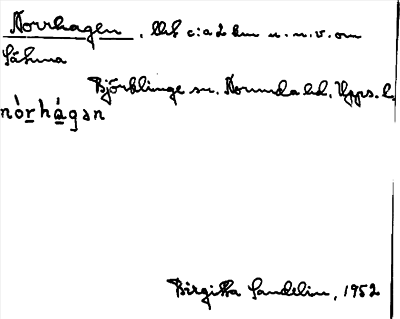 Norrhagen, Utk c:a 2 km n.n.v. om
Såhma
Björklinge sn. Norunda hd. Upps. l.
nòrhágan
Birgitta Sandelin, 1952